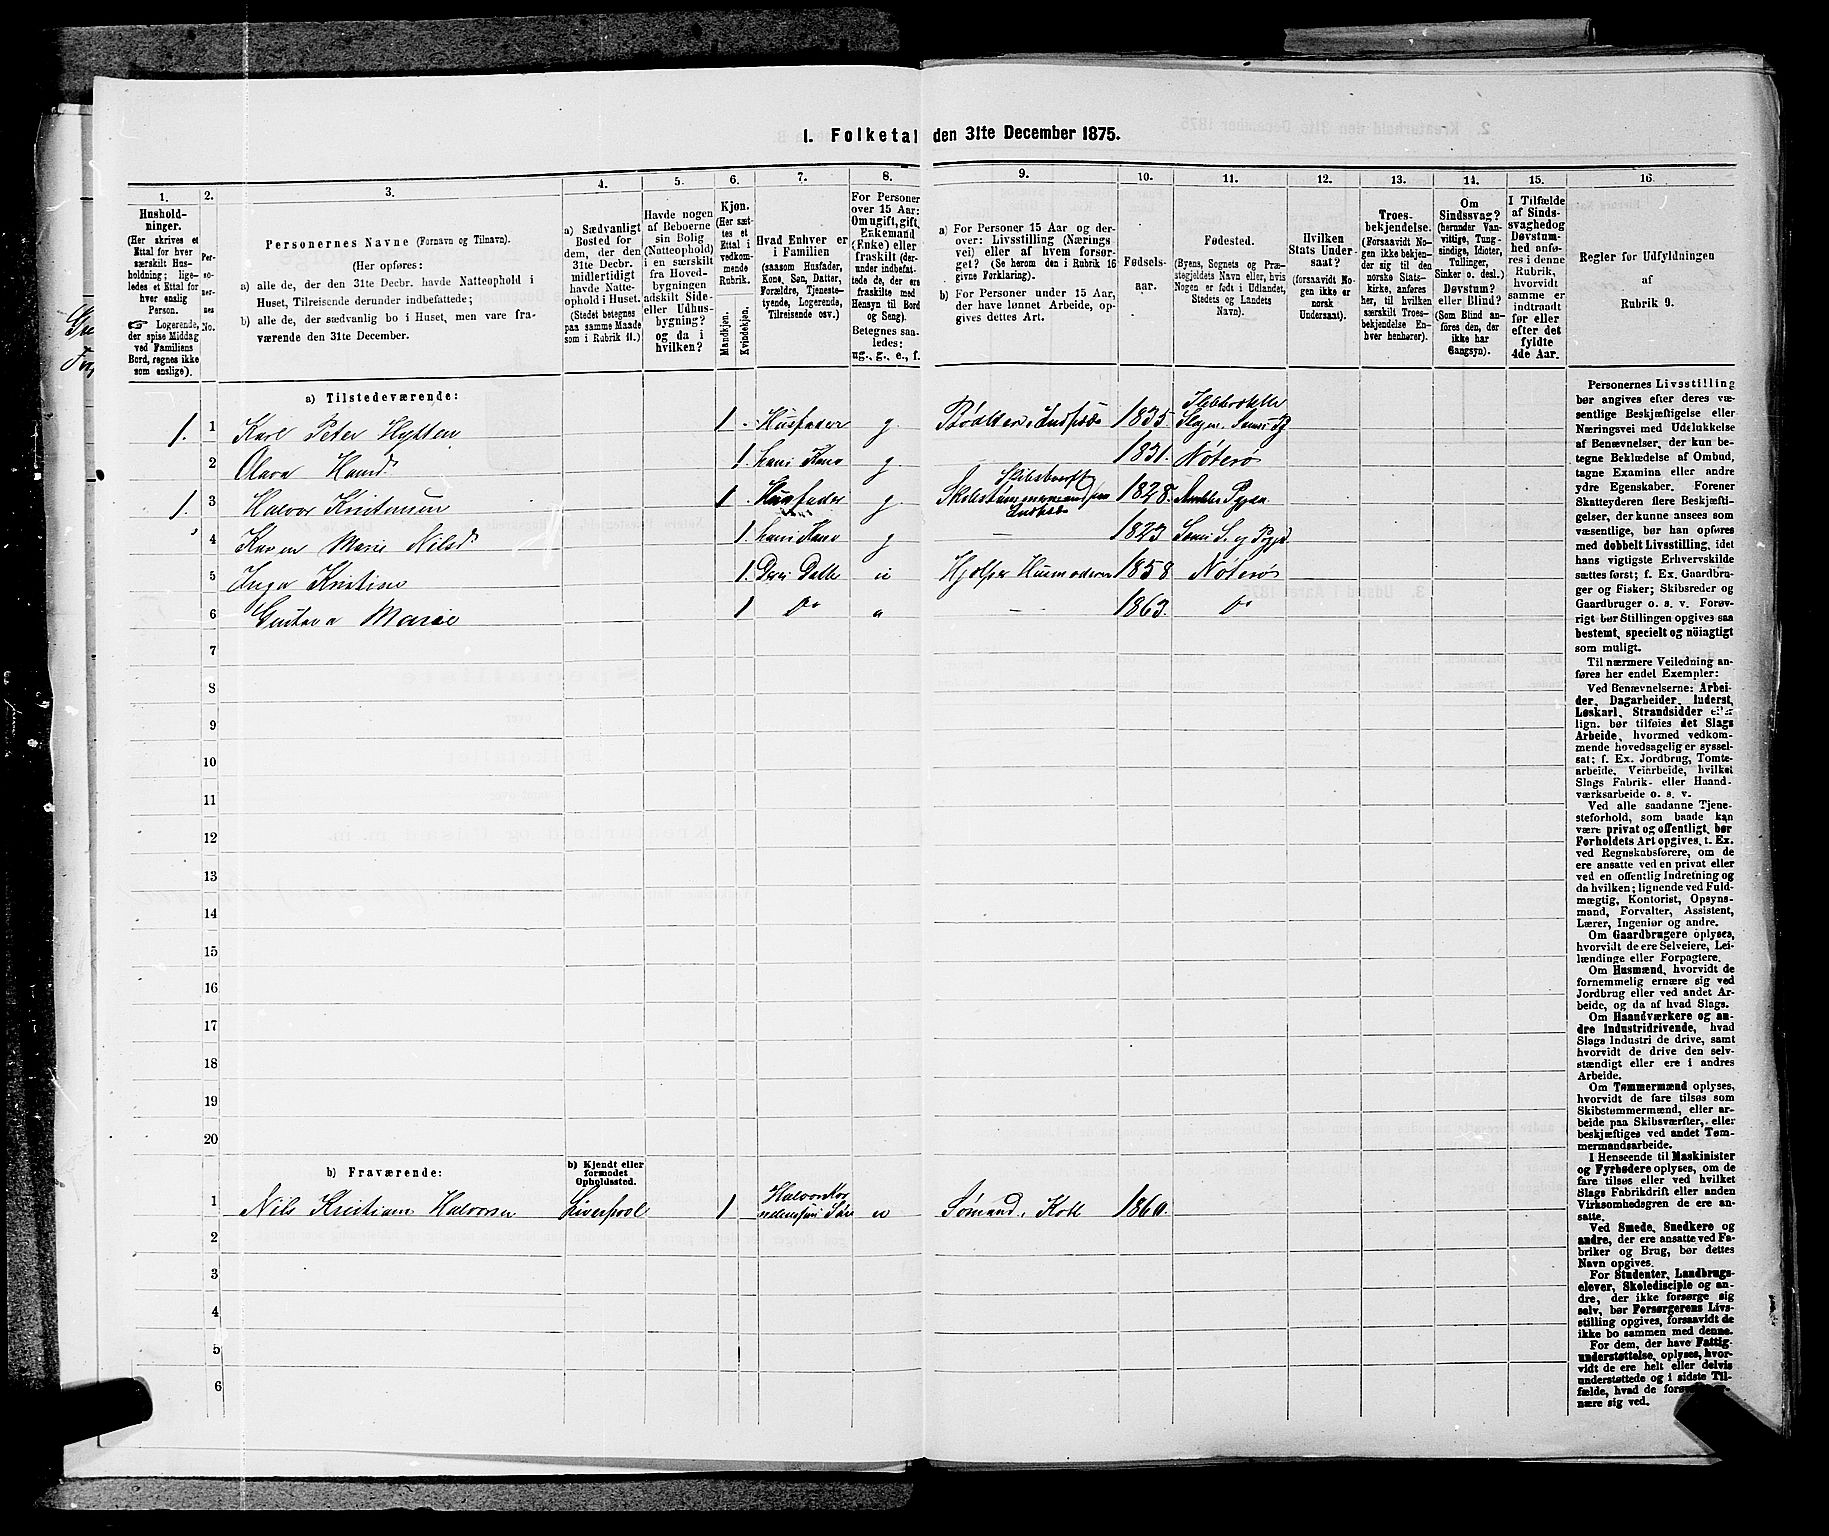 I. Folketal den 31te December 1875.
1.
2.
3.
4.
5.
6.
7.
8.
9.
10.
11.
12.
13.
14.
15.
16.
Hushold-
ninger.
(Her skrives et
Ettal for hver
særskilt Hus-
holdning; lige-
ledes et Ettal for
hver enslig
Person.
☞ Logerende,
der spise Middag
ved Familiens
Bord, regnes ikke
som enslige).
Per-
so-
ner-
nes
No.
Personernes Navne (Fornavn og Tilnavn).
(Her opføres:
a) alle de, der den 31te Decbr. havde Natteophold i
Huset, Tilreisende derunder indbefattede;
b) alle de, der sædvanlig bo i Huset, men vare fra-
værende den 31te December.
a) Sædvanligt
Bosted for
dem, der den
31te Decbr.
midlertidigt
havde Natte-
ophold i Huset.
(Stedet betegnes
paa samme Maade
som i Rubrik 11.)
Havde nogen
af Beboerne
sin Bolig
(Natteophold)
i en særskilt
fra Hoved-
bygningen
adskilt Side-
eller Udhus-
bygning?
og da i
hvilken?
Kjøn.
(Her sæt-
tes et
Ettal i
vedkom-
mende
Rubrik.
Mandkjøn.
Kvindekjøn.
Hvad Enhver er
i Familien
(saasom Husfader,
Kone, Søn, Datter,
Forældre, Tjeneste-
tyende, Logerende,
Tilreisende osv.)
For Personer
over 15 Aar:
Om ugift, gift,
Enkemand
(Enke) eller
fraskilt (der-
under indbefat-
tede de, der ere
fraskilte med
Hensyn til Bord
og Seng).
Betegnes saa-
ledes:
ug., g., e., f.
a) For Personer 15 Aar og der-
over: Livsstilling (Nærings-
vei) eller af hvem forsør-
get? (Se herom den i Rubrik 16
givne Forklaring).
b) For Personer under 15 Aar,
der have lønnet Arbeide, op-
gives dettes Art.
Fødsels-
aar.
Fødested.
(Byens, Sognets og Præ-
stegjeldets Navn eller, hvis
Nogen er født i Udlandet,
Stedets og Landets
Navn).
Hvilken
Stats Under-
saat?
(forsaavidt No-
gen ikke er
norsk
Undersaat).
Troes-
bekjendelse.
(Forsaavidt No-
gen ikke bekjen-
der sig til den
norske Stats-
kirke, anføres
her, til hvilken
særskilt Troes-
bekjendelse En-
hver henhører).
Om
Sindssvag?
(herunder Van-
vittige, Tung-
sindige, Idioter,
Tullinger,
Sinker o. desl.)
Døvstum?
eller Blind?
(Som Blind an-
føres den, der
ikke har
Gangsyn).
I Tilfælde
af Sinds-
svaghed og
Døvstum-
hed anfø-
res i denne
Rubrik,
hvorvidt
samme er
indtraadt
før eller
efter det
fyldte
4de Aar.
Regler for Udfyldningen
af
Rubrik 9.
a) Tilstedeværende:
1. 1 Karl Peter Hytten 1 Husfader g 1835.
2 Hand 1 hans Kone g 1831. Nøterø
1. 3 Halvor Kristensen 1 Husfader g 1828.
4 Karen Marie Nilsd 1 hans Kone g — 1823
5 Inga Kristine 1 Datte u Hjelper Husmoderen 1858 Nøterø
6 Gustava Marie 1 Do — 1863. Do
7
8
9
10
11
12
13
14
15
16
17
18
19
20
b) Fraværende:
b) Kjendt eller
formodet
Opholdssted.
1 Nils Kristian Halvorsen Liverpool 1 Sømand, Kok 1860.
2
3
4
5
6
Personernes Livsstilling
bør angives efter deres væ-
sentlige Beskjæftigelse eller
Næringsvei med Udelukkelse
af Benævnelser, der kun be-
tegne Beklædelse af Ombud,
tagne Examina eller andre
ydre Egenskaber. Forener
Skatteyderen flere Beskjæfti-
gelser, der kunne ansees som
væsentlige, bør han opføres
med dobbelt Livsstilling, idet
hans vigtigste Erhvervskilde
sættes først; f. Ex. Gaardbru-
ger og Fisker; Skibsreder og
Gaardbruger o. s. v. Forøv-
rigt bør Stillingen opgives saa
bestemt, specielt og nöiagtigt
som muligt.
Til nærmere Veiledning an-
føres her endel Exempler:
Ved Benævnelserne: Arbei-
der, Dagarbeider, Inderst,
Løskarl, Strandsidder eller
lign. bør tilføies det Slags
Arbeide, hvormed vedkom-
mende hovedsagelig er syssel-
sat; f. Ex. Jordbrug, Tomte-
arbeide, Veiarbeide, hvilket
Slags Fabrik- eller Haand-
værksarbeide o. s. v.
Ved alle saadanne Tjene-
steforhold, som baade kan
være privat og offentligt, bør
Forholdets Art opgives, t. Ex.
ved Regnskabsførere, om de
ere ansatte ved en privat eller
ved en offentlig Indretning og
da hvilken; lignende ved Fuld-
mægtig, Kontorist, Opsyns-
mand, Forvalter, Assistent,
Lærer, Ingeniør og andre.
Om Gaardbrugere oplyses,
hvorvidt de ere Selveiere, Lei-
lændinge eller Forpagtere.
Om Husmænd, hvorvidt de
fornemmelig ernære sig ved
Jordbrug eller ved andet Ar-
beide, og da af hvad Slags.
Om Haandværkere og an-
dre Industridrivende, hvad
Slags Industri de drive, samt
hvorvidt de drive den selv-
stændigt eller ere i andres
Arbeide.
Om Tømmermænd oplyses,
hvorvidt de fare tilsøs som
Skibstømmermænd, eller ar-
beide paa Skibsværfter, eller
beskjæftiges ved andet Tøm-
mermandsarbeide.
I Henseende til Maskinister
og Fyrbødere oplyses, om de
fare tilsøs eller ved hvilket
Slags Fabrikdrift eller anden
Virksomhedsgren de ere an-
satte.
Ved Smede, Snedkere og
andre, der ere ansatte ved Fa-
briker og Brug, bør dettes
Navn opgives.
For Studenter, Landbrugs-
elever, Skoledisciple og an-
dre, der ikke forsørge sig
selv, bør Forsørgerens Livs-
stilling opgives, forsaavidt de
ikke bo sammen med denne.
For dem, der have Fattig-
understøttelse, oplyses, hvor-
vidt de ere helt eller delvis
understøttede og i sidste Til-
fælde, hvad de
nære sig ved.